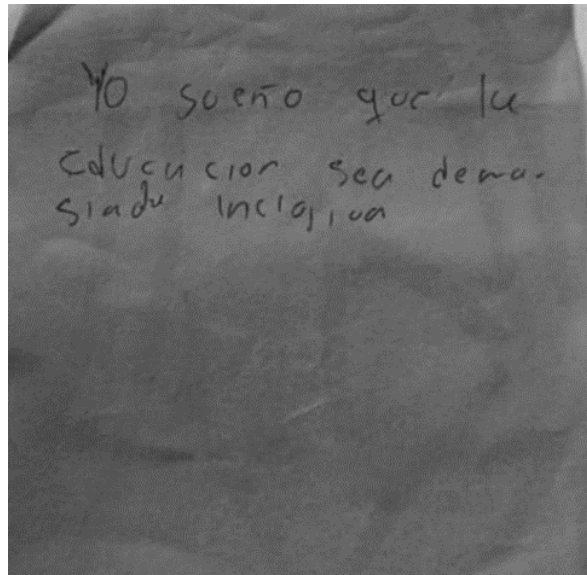 Yo sueño que la
educacion sea dema-
siado inclusiva